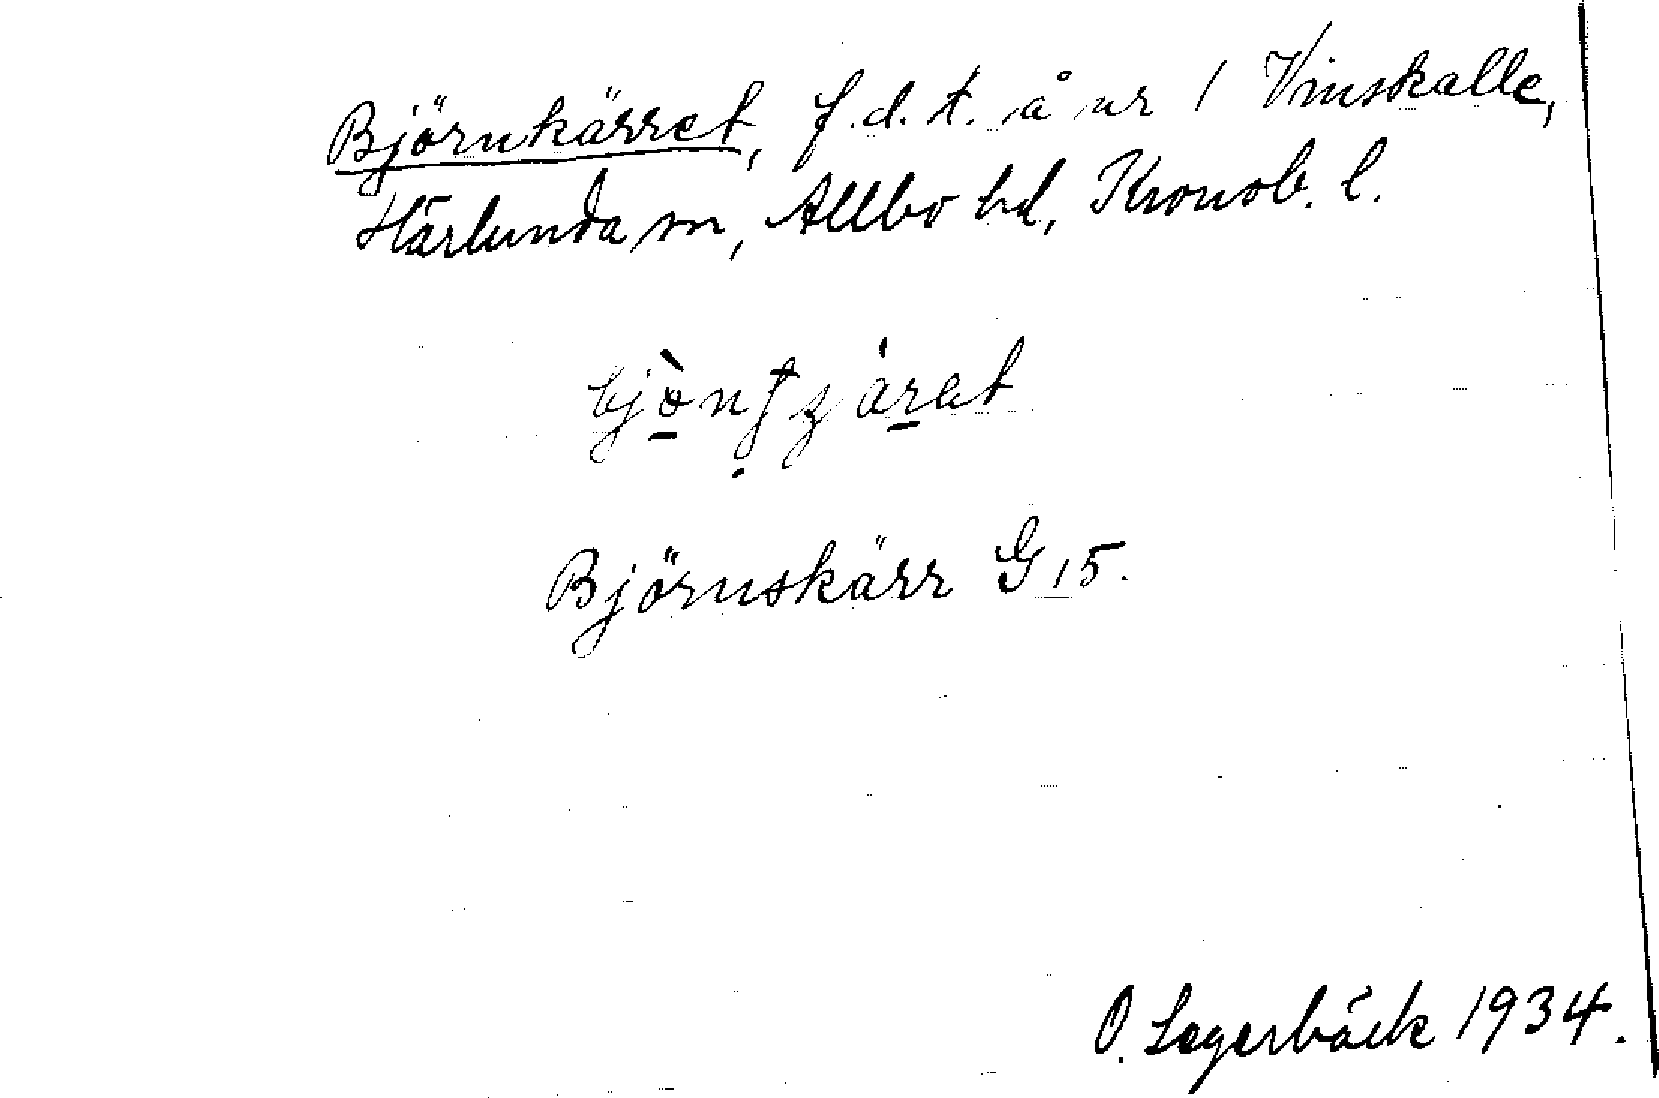 Björnkärret, f.d.t. å nr 1 Vinskalle,
Härlunda sn, Allbo hd, Kronob. l.
Björnskärr G 15.
O. Lagerbäck 1934.